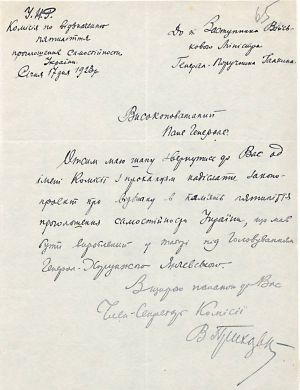 У.Н.Р.
Комісія по відзначенню
пятиліття
проголошення Самостійности
України.
Січня 17 дня 1923р.
65
До п. Заступника Військового Міністра
Генерал-Поручника
Високоповажаний
Пане Генерале.
Отсим маю шану звернутись до Вас од
імені Комісії з проханням надіслати законо-
проєкт про відзнаку в память пятиліття
проголошення самостійности України, що мав
бути вироблений у під головуванням
Генерал-Хорунжого
З щирою пошаною до Вас
Член-Секретар Комісії
В Приходь